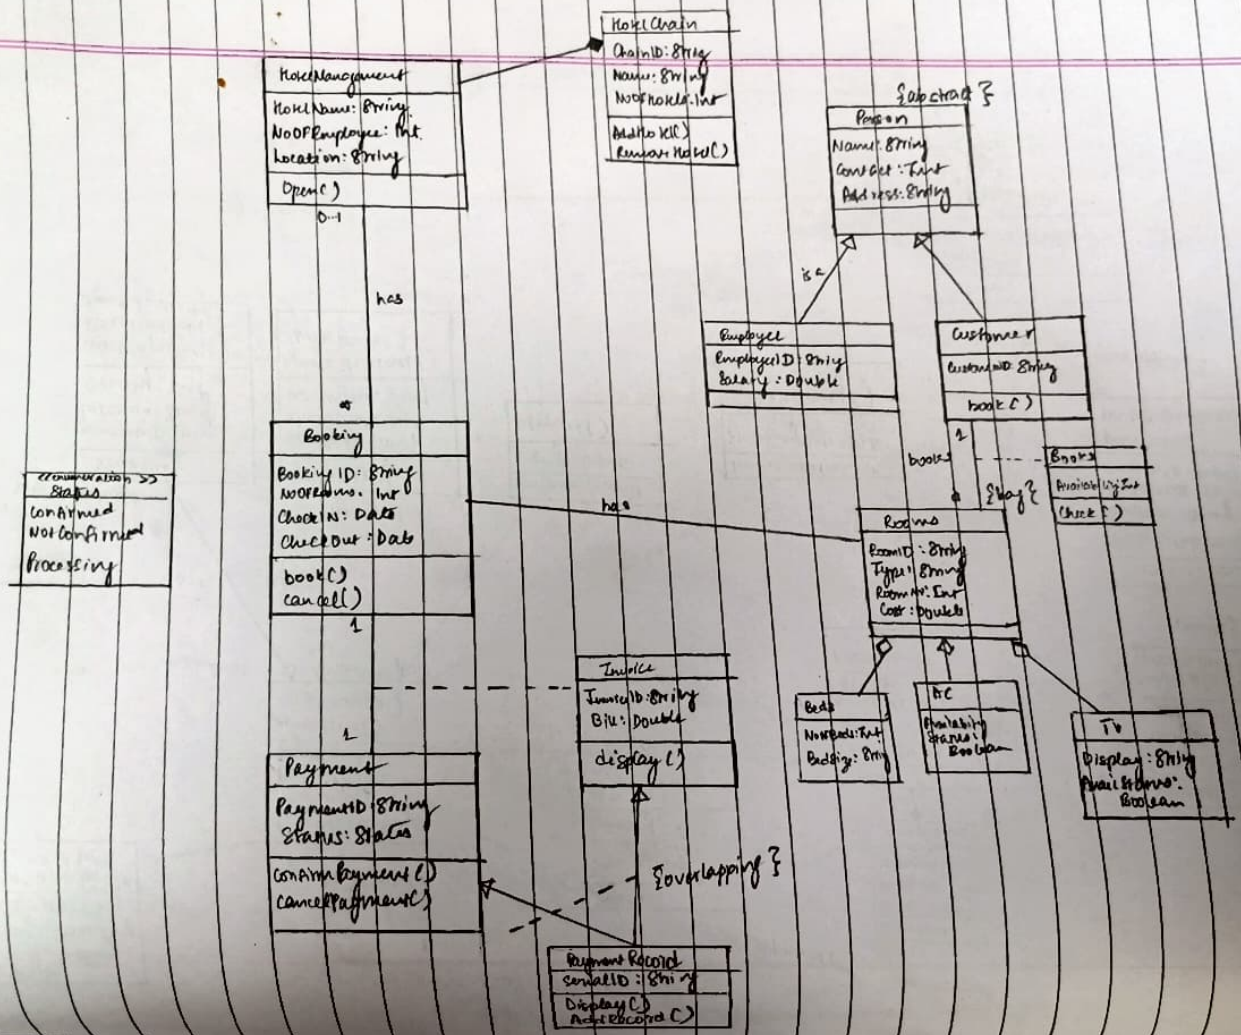 HotelChain
ChainID: String
Name: String
NoOfHotels: Int
AddHotel()
RemoveHotel()
HotelManagement
HotelName: String
NoOfEmployee: Int
Location: String
Open()
0..1
has
*
{abstract}
Person
Name: String
Contact: Int
Address: String
is a
Employee
EmployeeID: String
Salary: Double
Customer
CustomerID: String
book()
1
books
*
{bag}
Books
Availability: Int
Check()
Booking
Booking ID: String
NoOfRooms: Int
CheckIN: Date
CheckOut: Date
book()
cancel()
1
has
<<enumeration>>
Status
Confirmed
Not Confirmed
Processing
Rooms
RoomID: String
Type: String
RoomNo: Int
Cost: Double
Beds
NoOfBeds: Int
BedSize: String
AC
Status:
Boolean
TV
Display: String
AvailStatus:
Boolean
Invoice
InvoiceID: String
Bill: Double
display()
1
Payment
PaymentID: String
Status: Status
ConfirmPayment()
CancelPayment()
{overlapping}
Payment Record
SerialID: String
Display()
AddRecord()